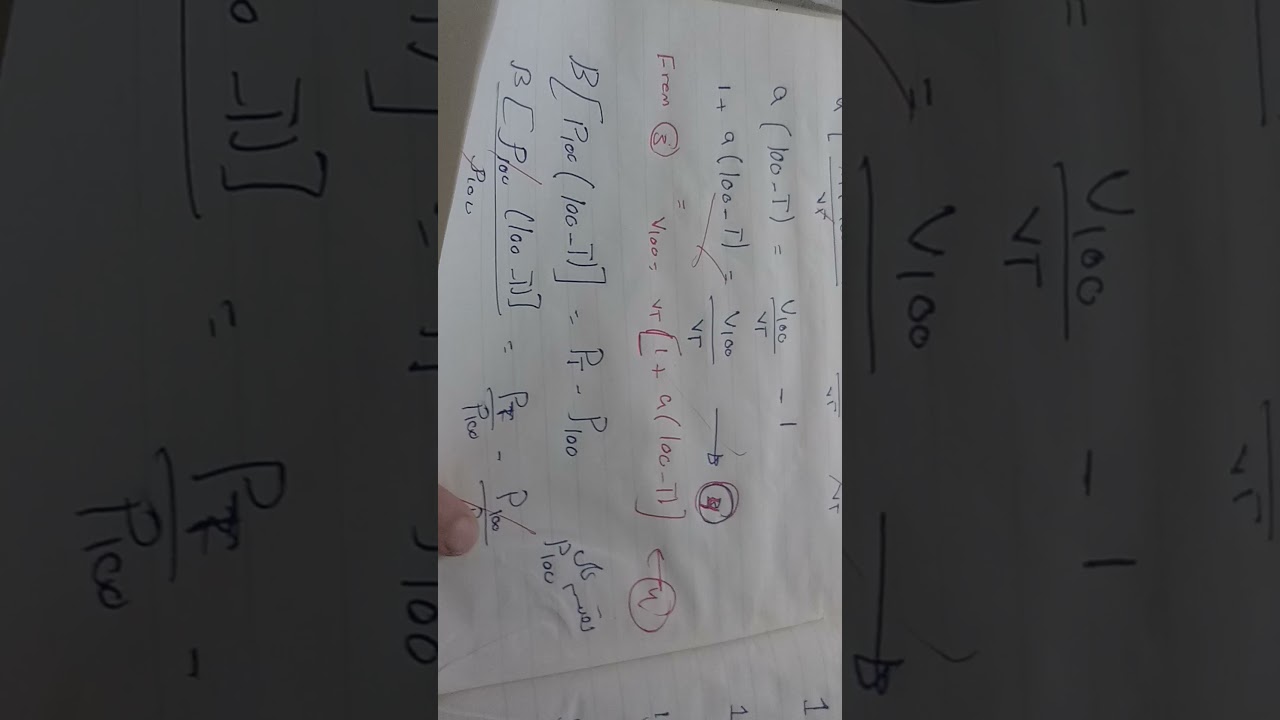 a (100 - T) = V100/VT - 1
1 + a (100 - T) = V100/VT → 4
From 3 = V100 = VT [1 + a (100 - T)] ← 4
B [P100 (100 - T)] = PT - P100
B [P100 (100 - T)]/P100 = PT/P100 - P100
P100